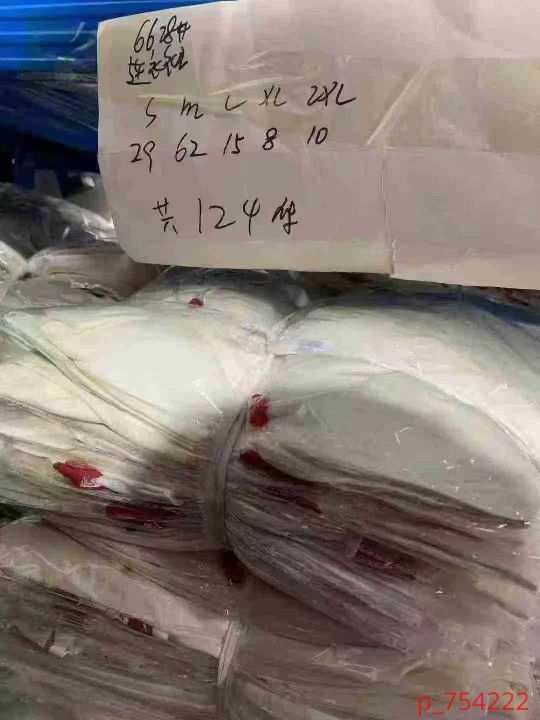 6628#
连衣裙
S M L XL 2XL
29 62 15 8 10
共 124 件
p_754222